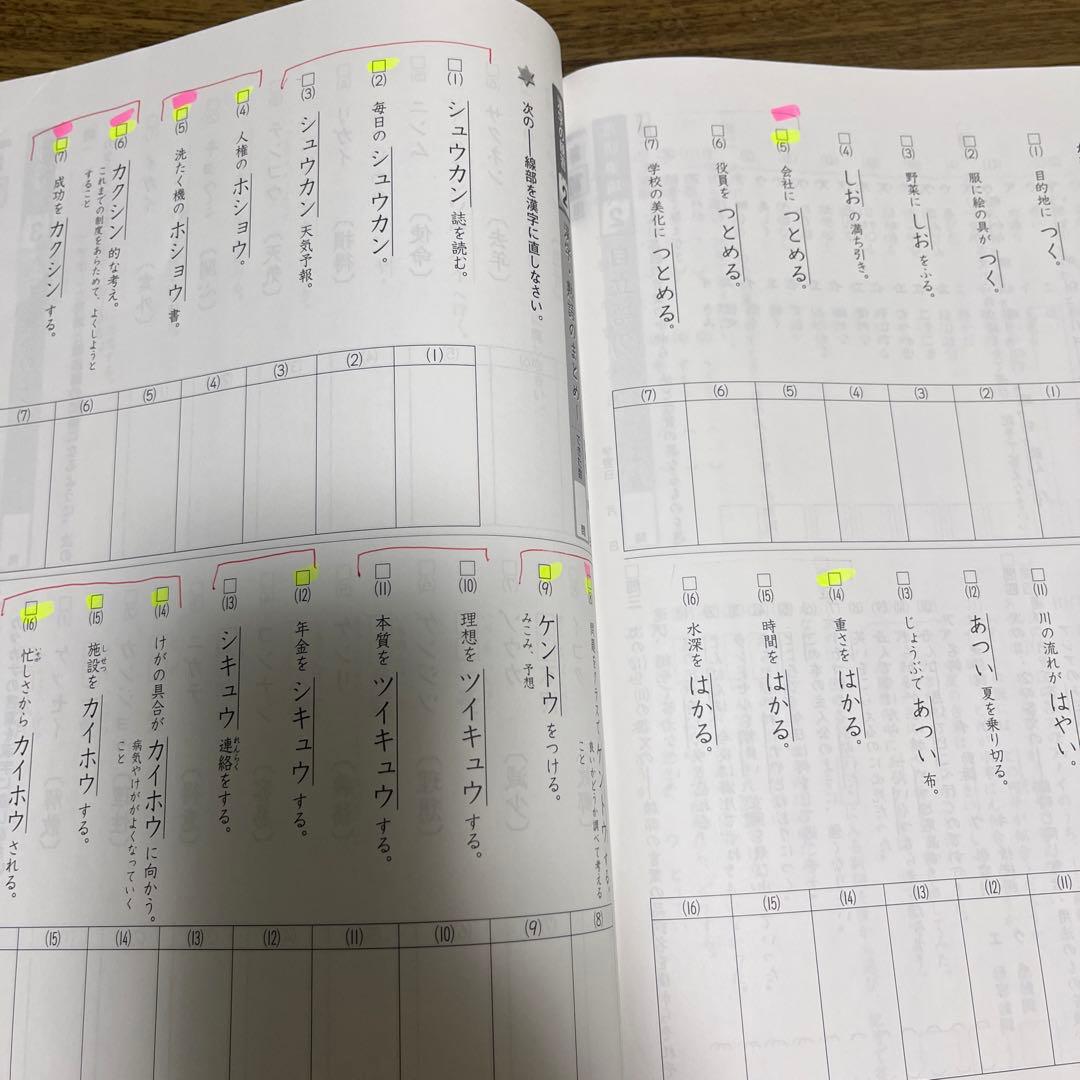 (1) 目的地につく。
(2) 服に絵の具がつく。
(3) 野菜にしおをふる。
(4) しおの満ち引き。
(5) 会社につとめる。
(6) 役員をつとめる。
(7) 学校の美化につとめる。
(1)
(2)
(3)
(4)
(5)
(6)
(7)
(11) 川の流れがはやい。
(12) あつい夏を乗り切る。
(13) じょうぶであつい布。
(14) 重さをはかる。
(15) 時間をはかる。
(16) 水深をはかる。
(11)
(12)
(13)
(14)
(15)
(16)
次の―線部を漢字に直しなさい。
(1) シュウカン誌を読む。
(2) 毎日のシュウカン。
(3) シュウカン天気予報。
(4) 人権のホショウ。
(5) 洗たく機のホショウ書。
(6) カクシン的な考え。
これまでの制度をあらためて、よくしようと
すること
(7) 成功をカクシンする。
(1)
(2)
(3)
(4)
(5)
(6)
(7)
問題をクラスでケントウする。
良いかどうか調べて考える
こと
(9) ケントウをつける。
みこみ、予想
(10) 理想をツイキュウする。
(11) 本質をツイキュウする。
(12) 年金をシキュウする。
(13) シキュウ連絡をする。
れんらく
(14) けがの具合がカイホウに向かう。
病気やけががよくなっていく
こと
(15) 施設をカイホウする。
しせつ
(16) 忙しさからカイホウされる。
(8)
(9)
(10)
(11)
(12)
(13)
(14)
(15)